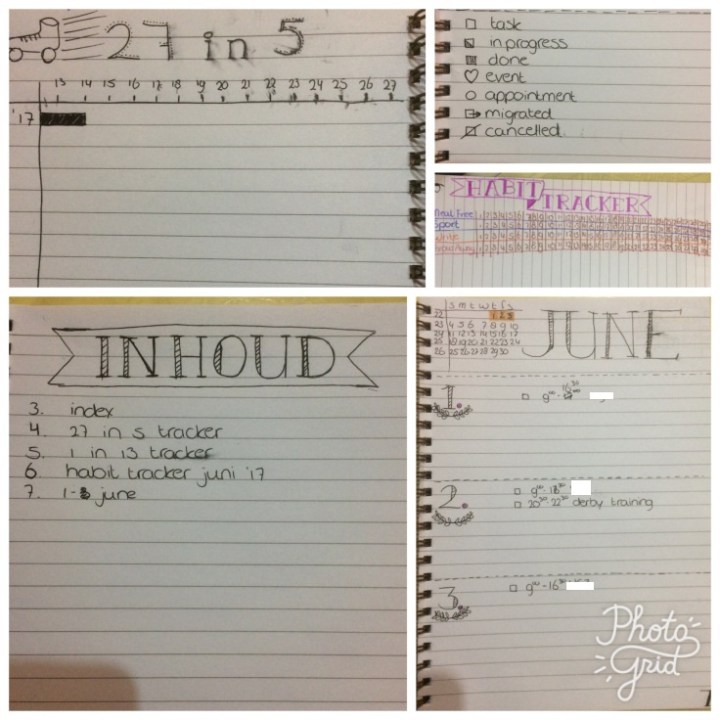 27 in 5
13 14 15 16 17 18 19 20 21 22 23 24 25 26 27
'17
task
in progress
done
event
appointment
migrated
cancelled
HABIT
TRACKER
Sport
INHOUD
3. index
4. 27 in 5 tracker
5. 1 in 13 tracker
6 habit tracker juni '17
7. 1-3 june
S m t w t f s
22 1 2 3
23 4 5 6 7 8 9 10
24 11 12 13 14 15 16 17
25 18 19 20 21 22 23 24
26 25 26 27 28 29 30
JUNE
1.
2.
9°° - 18³⁰
20³⁰ 22³⁰ derby training
3.
9°° - 16³⁰
Photo
Grid
7